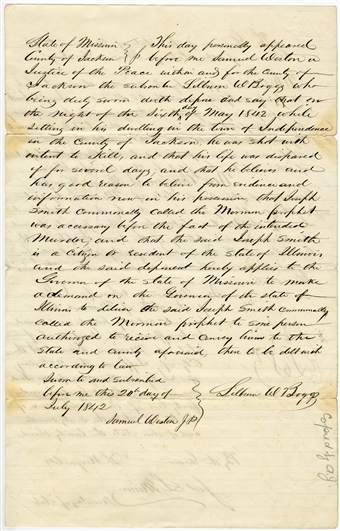 State of Missouri } This day personally appeared
County of Jackson } before me Samuel Weston a
Justice of the Peace within and for the County of
Jackson the subscriber Lilburn W Boggs who
being duly sworn doth depose and say that on
the night of the Sixth day of May 1842 while
setting in his dwelling in the town of Independence
in the County of Jackson he was shot with
intent to kill, and that his life was dispaired
of for several days, and that he believes and
has good reason to believe from evidence and
information now in his possession, that Joseph
Smith commonly called the Mormon prophet
was accessary before the fact of the intended
Murder, and that the said Joseph Smith
is a citizen or resident of the State of Illinois
and the said deponent hereby applies to the
Governor of the State of Missouri to make
a demand on the Governor of the State of
Illinois to deliver the said Joseph Smith commonly
called the Mormon prophet to some person
authorized to receive and convey him to the
State and County aforesaid there to be delt with
according to law
Sworn to and subscribed
before me this 20th day of } Lilburn W Boggs
July 1842
Samuel Weston J.P.